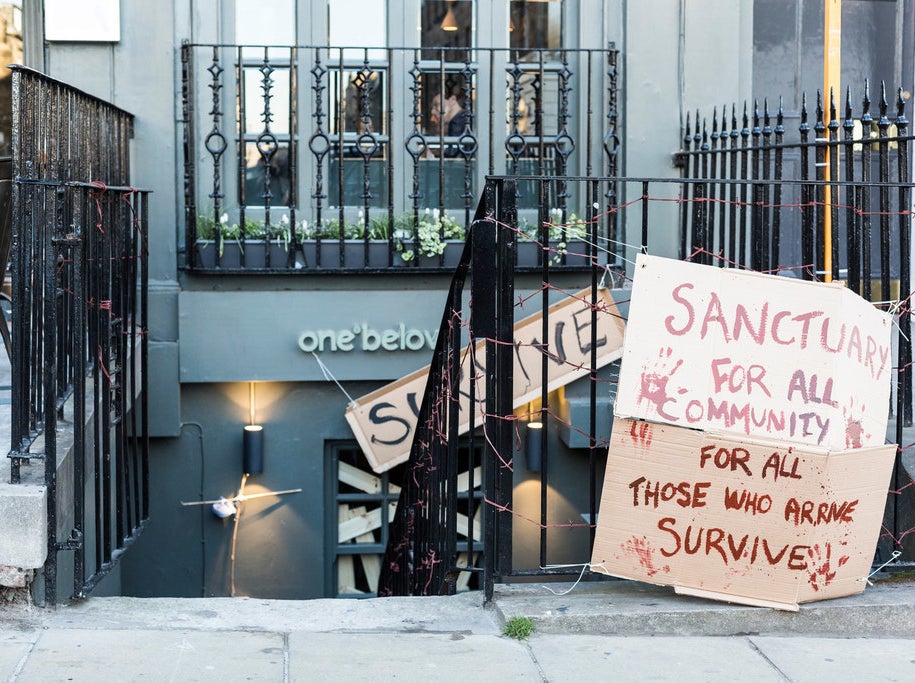 one°below
SURVIVE
SANCTUARY
FOR ALL
COMMUNITY
FOR ALL
THOSE WHO ARRIVE
SURVIVE